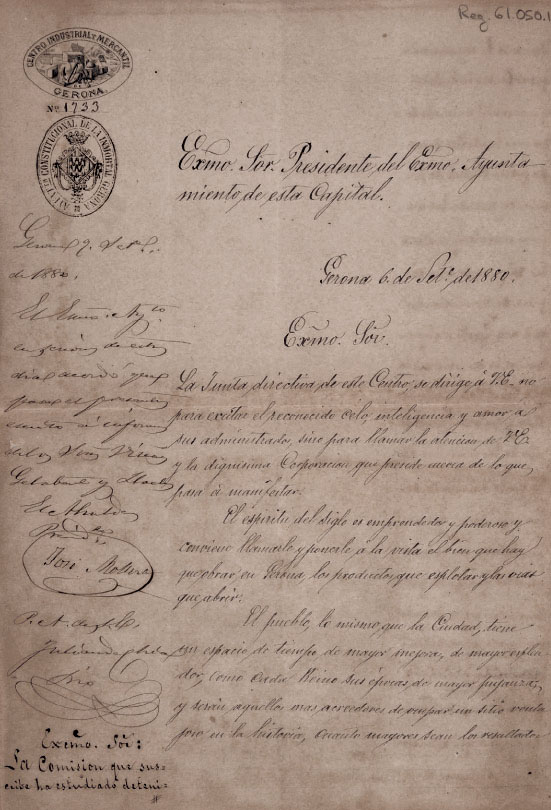 Reg. 61.050.1
CENTRO INDUSTRIAL Y MERCANTIL
GERONA.
No. 1733
AYUNTO. CONSTITUCIONAL DE LA INMORTAL GERONA
Exmo. Sor. Presidente del Exmo. Ayunta
miento de esta Capital.
Gerona 6. de Set.e de 1880.
Exmo. Sor.
La Junta directiva de este Centro se dirige á V.E. no
para excitar el reconocido celo, inteligencia y amor a
sus administrados, sino para llamar la atencion de V.E
y la dignisima Corporacion que preside acerca de lo que
pasa á manifestar.
El espiritu del siglo es emprendedor y poderoso y
conviene llamarlo y ponerle á la vista el bien que hay
que obrar en Gerona, los productos que esplotar y las vias
que abrir.
El pueblo, lo mismo que la Ciudad, tiene
un espacio de tiempo de mayor mejora, de mayor esplen
dor, como cada Reino sus épocas de mayor pujanza;
y serán aquellos mas acreedores de ocupar un sitio venta
joso en la historia, cuanto mayores sean los resultados
Gerona 9. Set.
de 1880.
El Exmo. Ayto
en sesion de este
dia acordó que
pase el presente
escrito á informe
de los Sres
y
El Alcalde
Presidte
José
P. A. de
Exemo. Sor:
La Comision que sus-
cribe ha estudiado deteni-